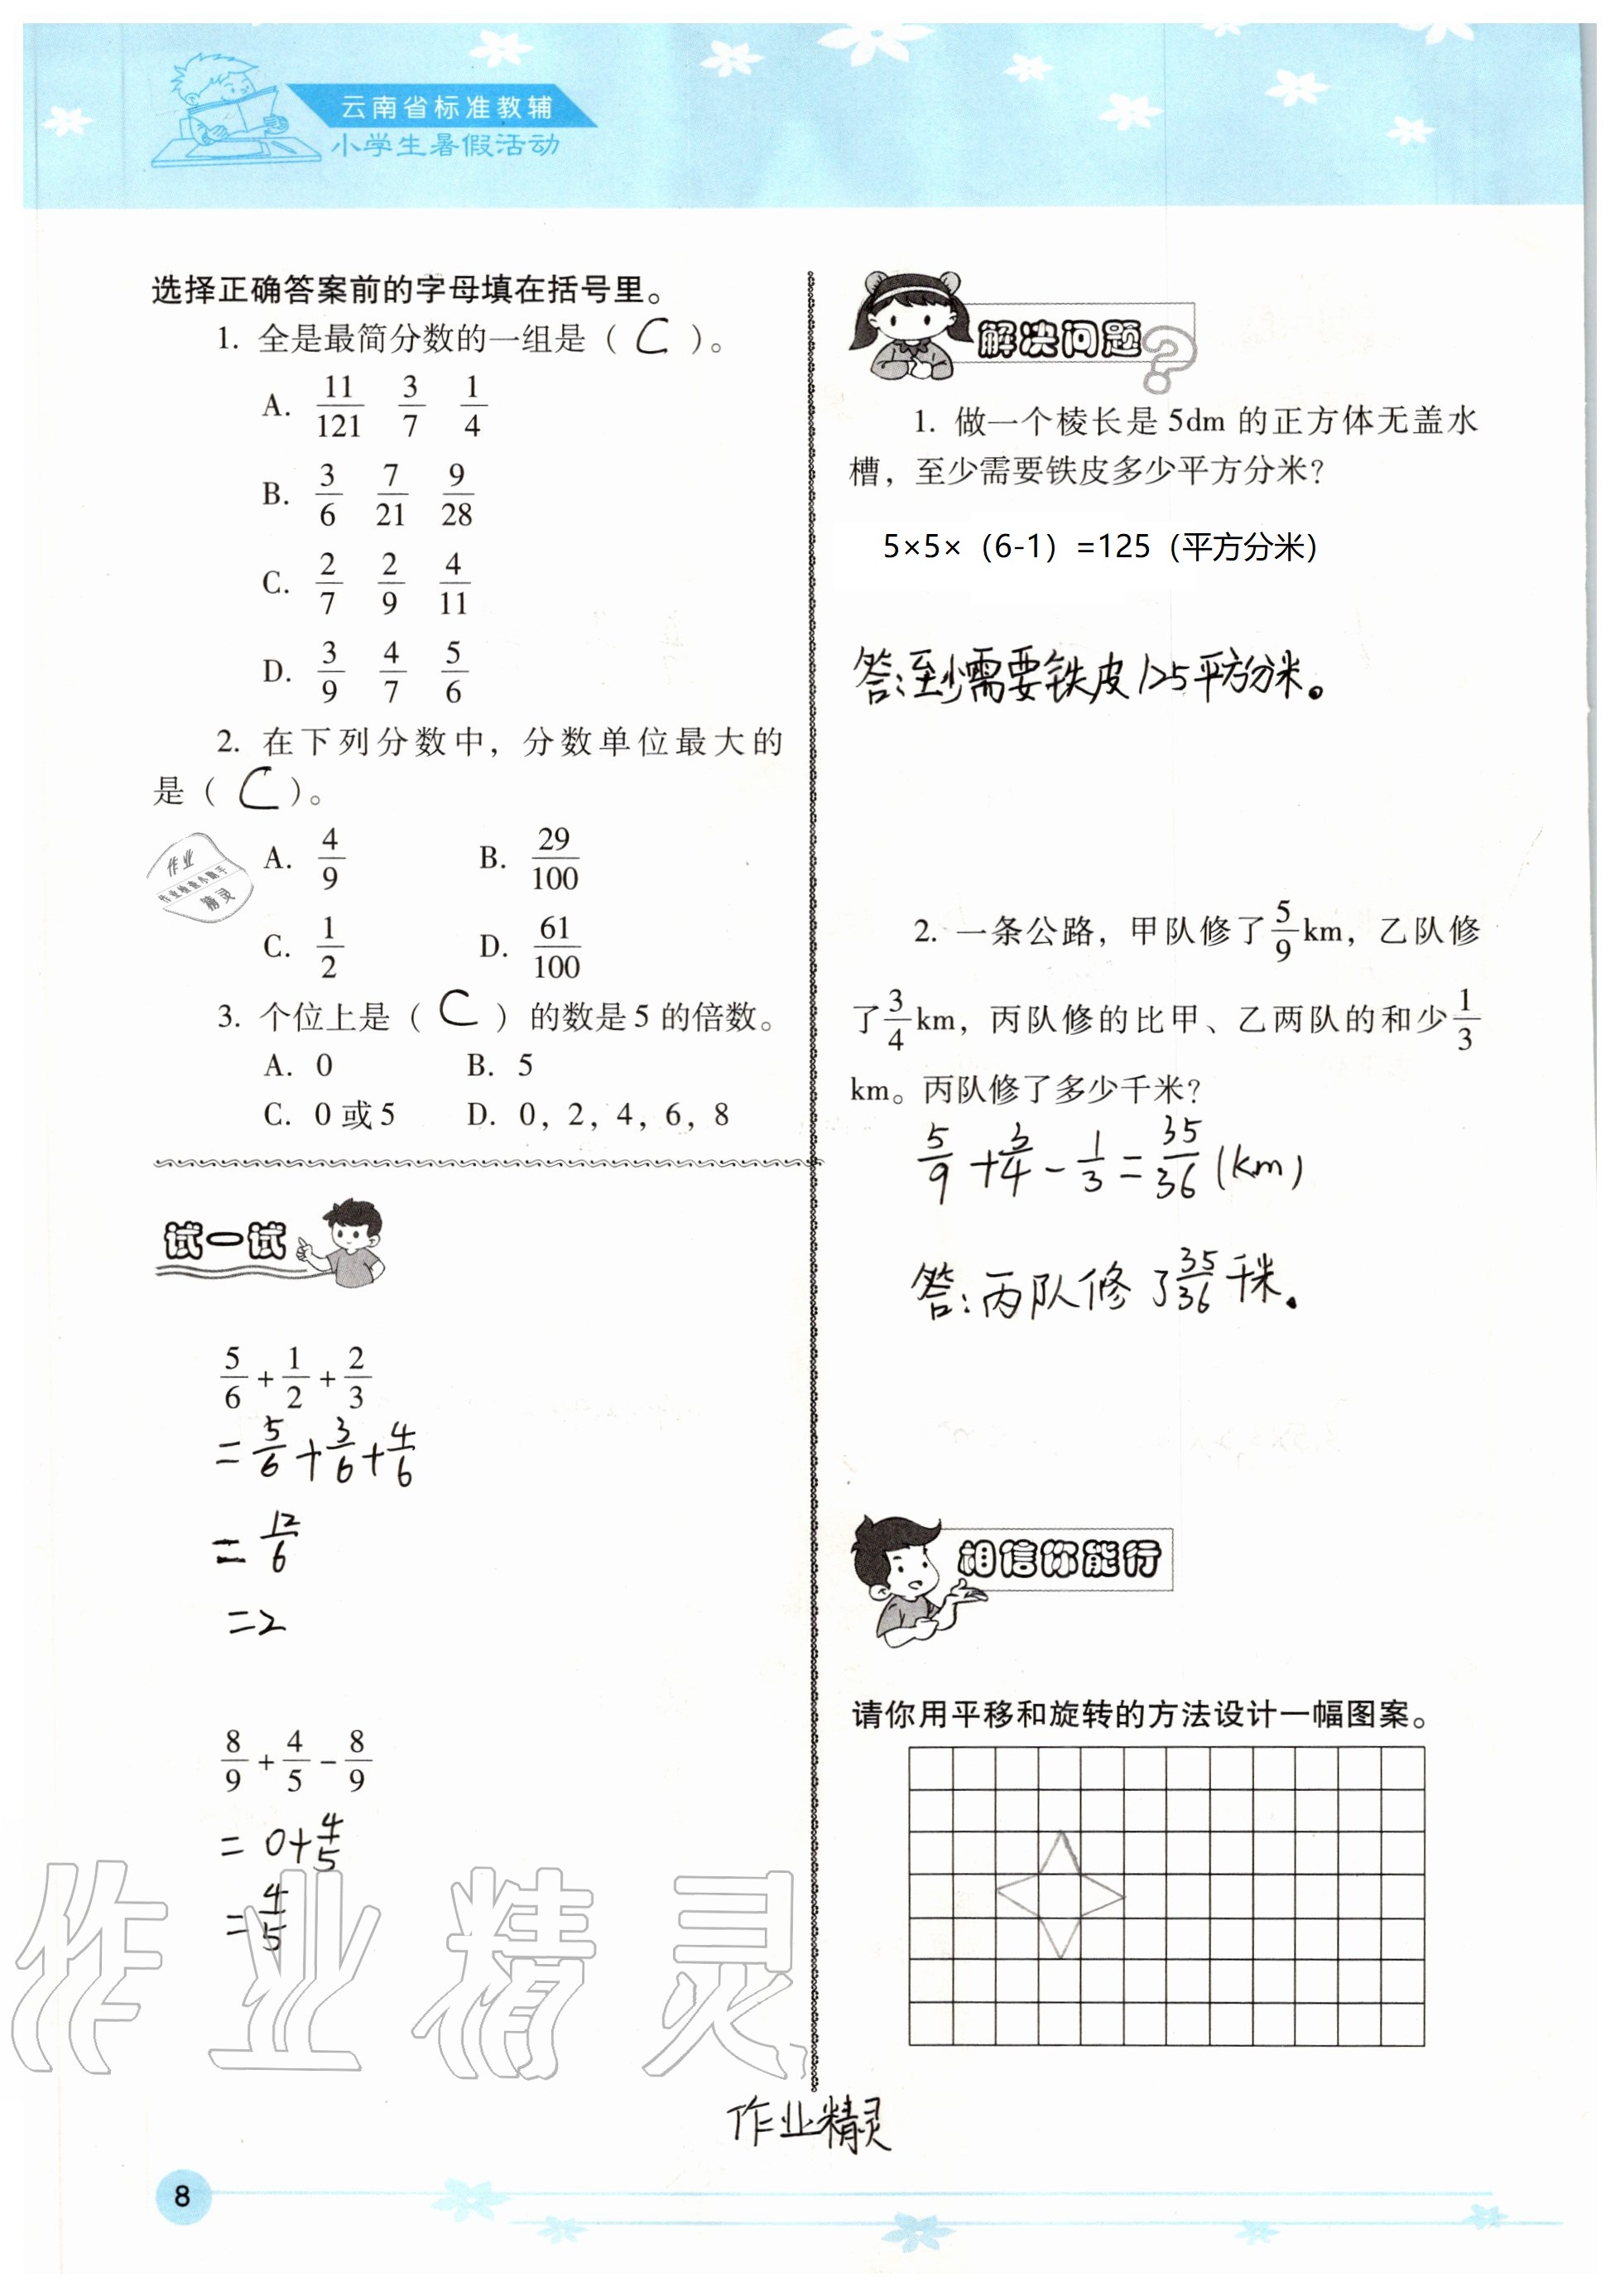 云南省标准教辅
小学生暑假活动
选择正确答案前的字母填在括号里。
1. 全是最简分数的一组是（ C ）。
A. 11/121 3/7 1/4
B. 3/6 7/21 9/28
C. 2/7 2/9 4/11
D. 3/9 4/7 5/6
2. 在下列分数中，分数单位最大的
是（ C ）。
A. 4/9 B. 29/100
C. 1/2 D. 61/100
3. 个位上是（ C ）的数是5的倍数。
A. 0 B. 5
C. 0或5 D. 0，2，4，6，8
试一试
5/6+1/2+2/3
=5/6+3/6+4/6
=12/6
=2
8/9+4/5-8/9
=0+4/5
=4/5
解决问题?
1. 做一个棱长是5dm的正方体无盖水
槽，至少需要铁皮多少平方分米?
5×5×（6-1）=125（平方分米）
答:至少需要铁皮125平方分米。
2. 一条公路，甲队修了5/9km，乙队修
了3/4km，丙队修的比甲、乙两队的和少1/3
km。丙队修了多少千米?
5/9+3/4-1/3=35/36(km)
答:丙队修了35/36千米.
相信你能行
请你用平移和旋转的方法设计一幅图案。
作业精灵
作业精灵
作业
精灵
8